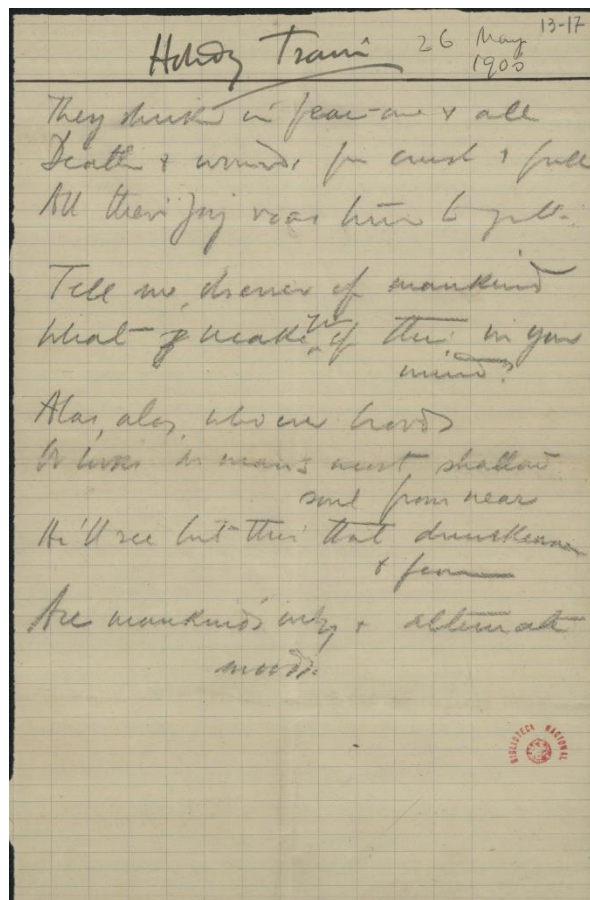 13-17
26 May
1908
They shriked in fear – one & all
Death & wounds for crush & fall
All their joy was
Tell me, of mankind
What make you of this in your
mind?
Alas, alas, who ere
Or looks in man's most shallow
soul from near
He'll see but this that drunkenness
& fear
Are mankind's only & alternate
moods.
BIBLIOTECA NACIONAL